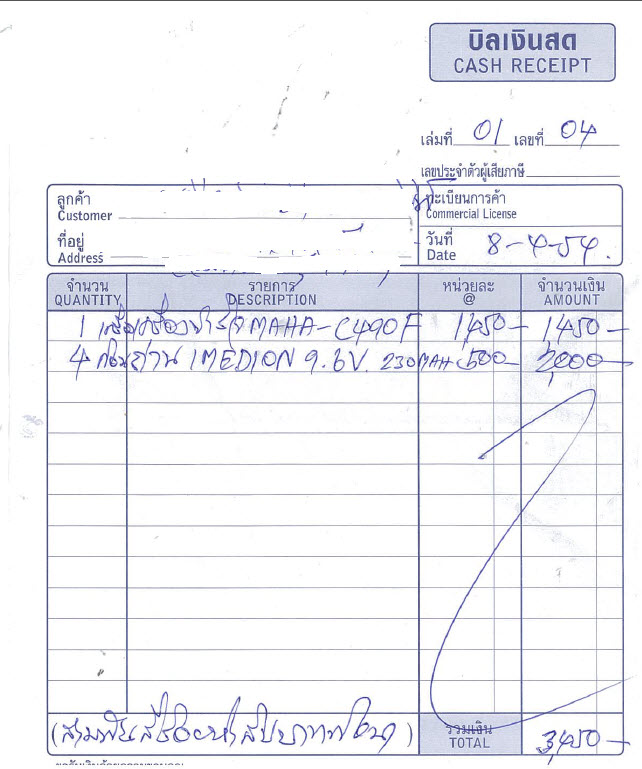 บิลเงินสด
CASH RECEIPT
เล่มที่ 01 เลขที่ 04
เลขประจำตัวผู้เสียภาษี
ลูกค้า
Customer
ทะเบียนการค้า
Commercial License
ที่อยู่
Address
วันที่ 8-4-54.
Date
จำนวน รายการ หน่วยละ จำนวนเงิน
QUANTITY DESCRIPTION @ AMOUNT
1 MAHA-C490F 1,450- 1,450-
4 ก้อนถ่าน IMEDION 9.6V. 230MAH 500- 2,000-
(สามพันสี่ร้อยห้าสิบบาทถ้วน)
รวมเงิน
TOTAL 3,450-